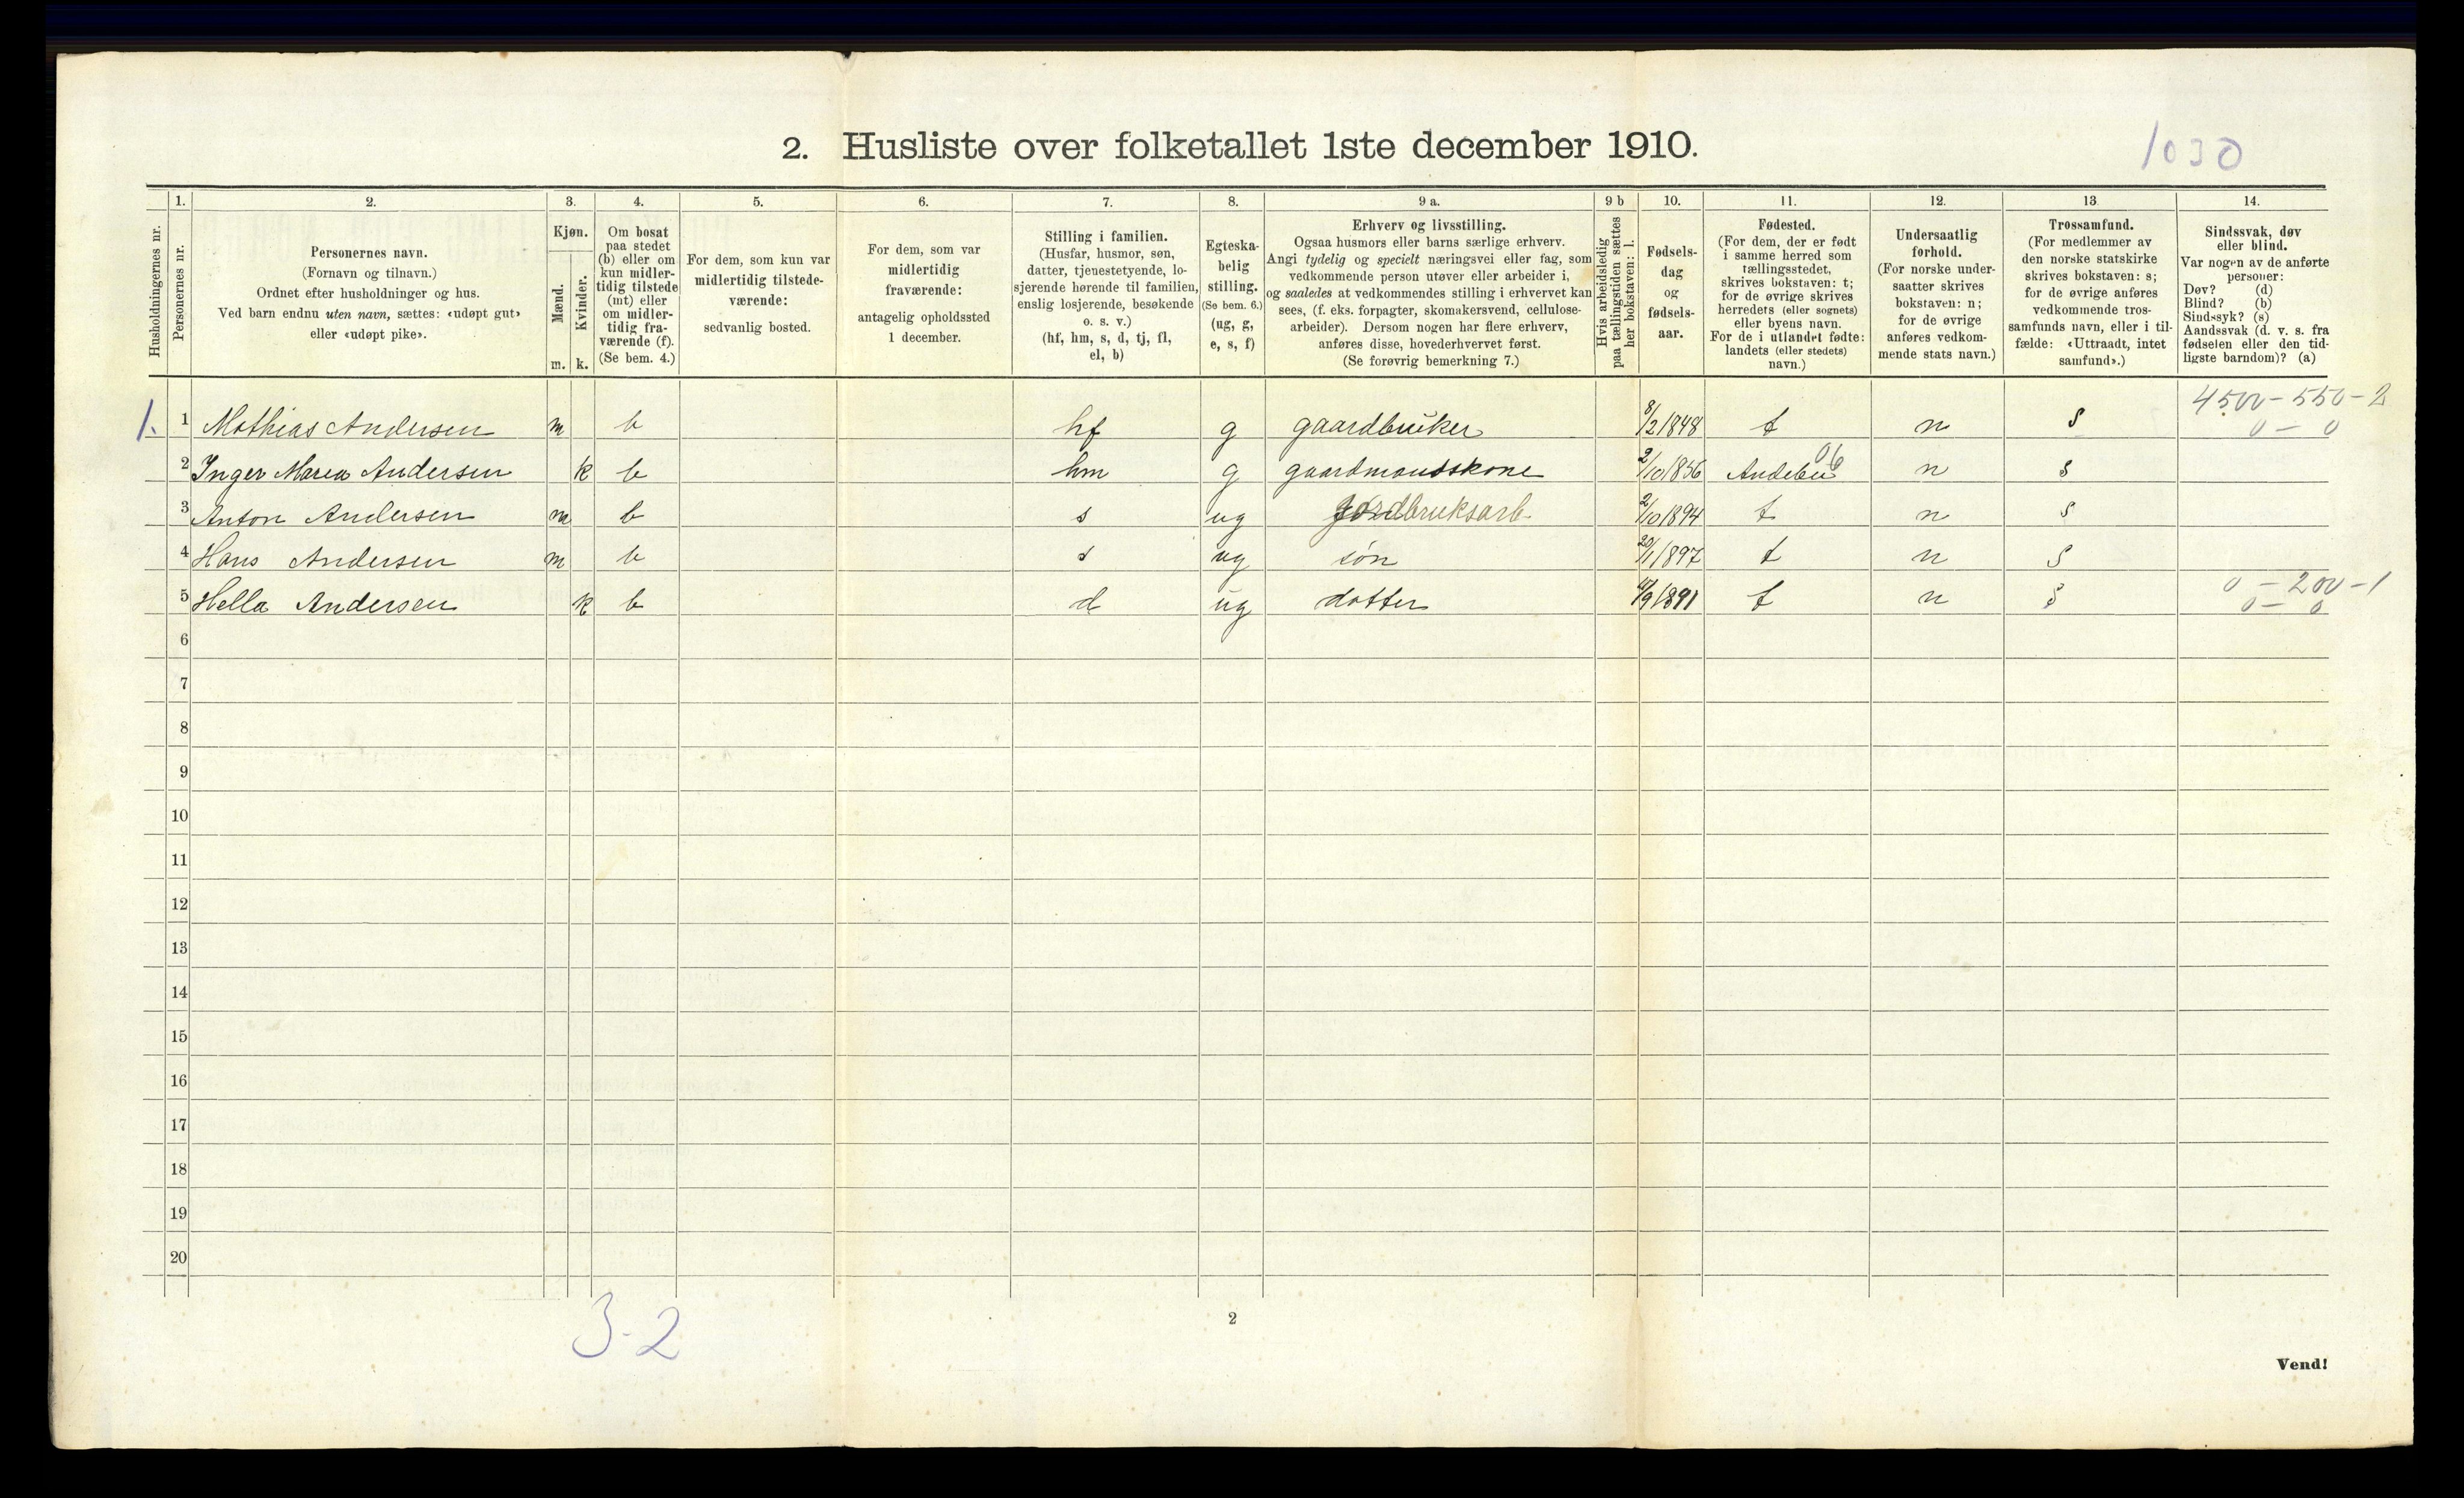 2. Husliste over folketallet 1ste december 1910.
1030
1. 2. 3. 4. 5. 6. 7. 8. 9 a. 9 b 10. 11. 12. 13 14.
Husholdningernes nr.
Personernes nr.
Personernes navn.
(Fornavn og tilnavn.)
Ordnet efter husholdninger og hus.
Ved barn endnu uten navn, sættes: «udøpt gut»
eller «udøpt pike».
Kjøn.
Mænd.
Kvinder.
m. k.
Om bosat
paa stedet
(b) eller om
kun midler-
tidig tilstede
(mt) eller
om midler-
tidig fra-
værende (f).
(Se bem. 4.)
For dem, som kun var
midlertidig tilstede-
værende:
sedvanlig bosted.
For dem, som var
midlertidig
fraværende:
antagelig opholdssted
1 december.
Stilling i familien.
(Husfar, husmor, søn,
datter, tjenestetyende, lo-
sjerende hørende til familien,
enslig losjerende, besøkende
o. s. v.)
(hf, hm, s, d, tj, fl,
el, b)
Egteska-
belig
stilling.
(Se bem. 6.)
(ug, g,
e, s, f)
Erhverv og livsstilling.
Ogsaa husmors eller barns særlige erhverv.
Angi tydelig og specielt næringsvei eller fag, som
vedkommende person utøver eller arbeider i,
og saaledes at vedkommendes stilling i erhvervet kan
sees, (f. eks. forpagter, skomakersvend, cellulose-
arbeider). Dersom nogen har flere erhverv,
anføres disse, hovederhvervet først.
(Se forøvrig bemerkning 7.)
Hvis arbeidsledig
paa tællingstiden sættes
her bokstaven: l.
Fødsels-
dag
og
fødsels-
aar.
Fødested.
(For dem, der er født
i samme herred som
tællingsstedet,
skrives bokstaven: t;
for de øvrige skrives
herredets (eller sognets)
eller byens navn.
For de i utlandet fødte:
landets (eller stedets)
navn.)
Undersaatlig
forhold.
(For norske under-
saatter skrives
bokstaven: n;
for de øvrige
anføres vedkom-
mende stats navn.)
Trossamfund.
(For medlemmer av
den norske statskirke
skrives bokstaven: s;
for de øvrige anføres
vedkommende tros-
samfunds navn, eller i til-
fælde: «Uttraadt, intet
samfund».)
Sindssvak, døv
eller blind.
Var nogen av de anførte
personer:
Døv? (d)
Blind? (b)
Sindssyk? (s)
Aandssvak (d. v. s. fra
fødselen eller den tid-
ligste barndom)? (a)
4500-550-2
1. 1 Mathias Andersen m b hf g gaardbruker 8/2 1848 t n s 0-0
06
2 Inger Maria Andersen k b hm g gaardmandskone 2/10 1856 Andebu n s
3 Anton Andersen m b s ug Jordbruksarb. 2/10 1894 t n s
4 Hans Andersen m b s ug søn 20/1 1897 t n s
0-200-1
5 Hella Andersen k b d ug datter /9 1891 t n s 0-0
6
7
8
9
10
11
12
13
14
15
16
17
18
19
20
3-2
2
Vend!